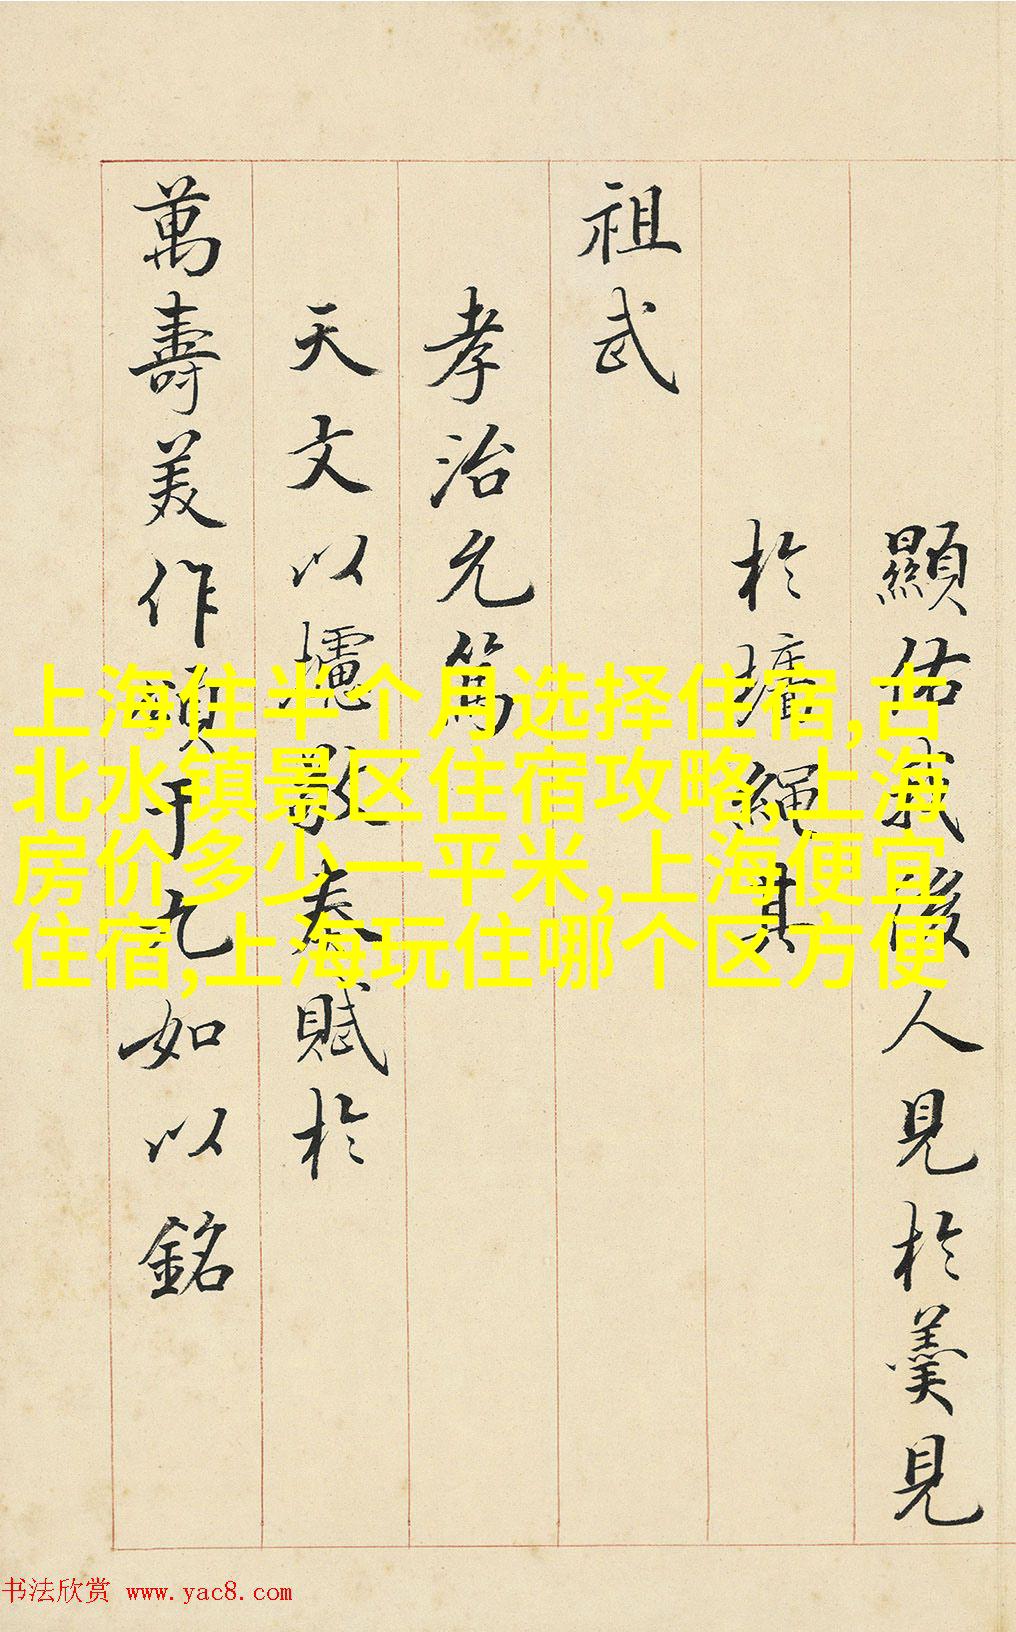 顯佑我後人見於羹見
於墻繩其
祖武
孝治允篤
天文以攄歌奏賦於
萬壽美作頌于九如以銘
上海住半个月选择住宿,古
北水镇景区住宿攻略,上海
房价多少一平米,上海便宜
住宿,上海玩住哪个区方便
书法欣赏 www.yac8.com